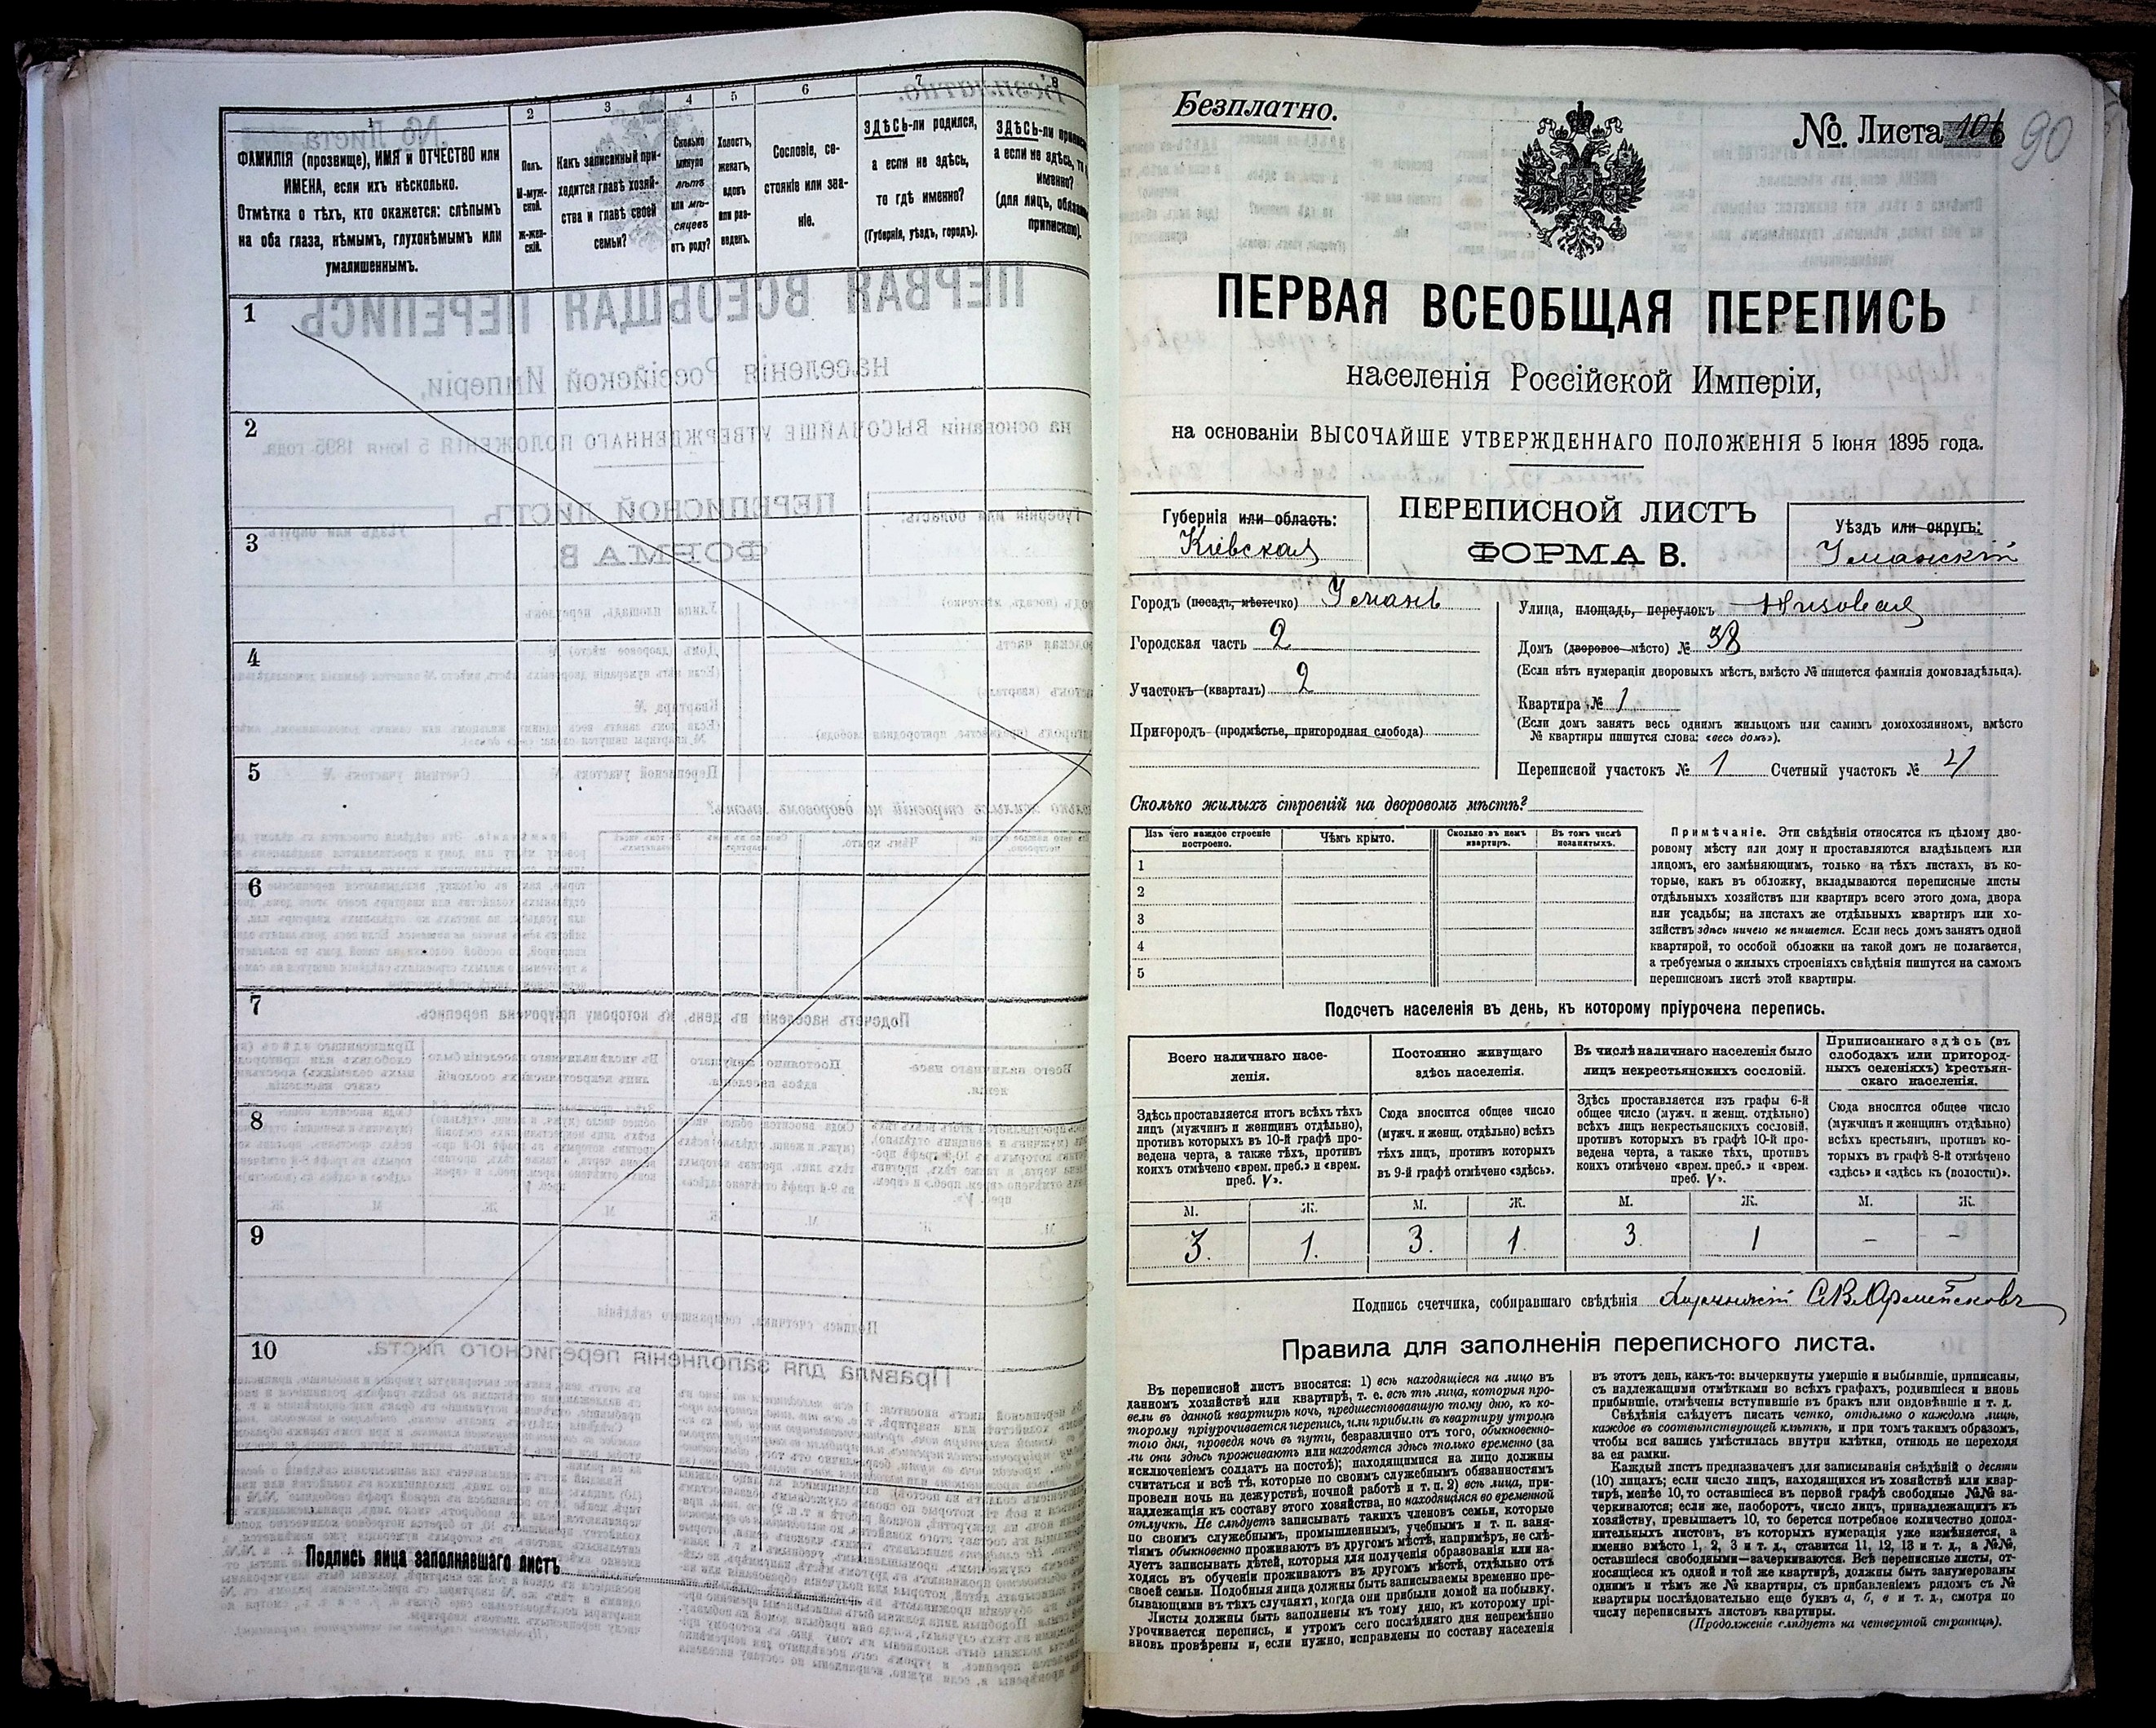 1
2
3
4
5
6
7
8
ФАМИЛІЯ (прозвище), ИМЯ и ОТЧЕСТВО или
ИМЕНА, если ихъ нѣсколько.
Отмѣтка о тѣхъ, кто окажется: слѣпымъ
на оба глаза, нѣмымъ, глухонѣмымъ или
умалишеннымъ.
Полъ.
М-муж-
ской.
Ж-жен-
скій.
Какъ записанный при-
ходится главѣ хозяй-
ства и главѣ своей
семьи?
Сколько
минуло
лѣтъ
или мѣ-
сяцевъ
отъ роду?
Холостъ,
женатъ,
вдовъ
или раз-
веденъ.
Сословіе, со-
стояніе или зва-
ніе.
ЗДѢСЬ-ли родился,
а если не здѣсь,
то гдѣ именно?
(Губернія, уѣздъ, городъ).
ЗДѢСЬ-ли
а если не здѣсь,
именно?
(для лицъ,
припискою).
1
2
3
4
5
6
7
8
9
10
Подпись лица заполнявшаго листъ
Безплатно.
№ Листа 106
90
ПЕРВАЯ ВСЕОБЩАЯ ПЕРЕПИСЬ
населенія Россійской Имперіи,
на основаніи ВЫСОЧАЙШЕ УТВЕРЖДЕННАГО ПОЛОЖЕНІЯ 5 Іюня 1895 года.
Губернія или область:
Кіевская
ПЕРЕПИСНОЙ ЛИСТЪ
ФОРМА В.
Уѣздъ или округъ:
Уманскій
Городъ (посадъ, мѣстечко) Умань
Городская часть 2
Участокъ (кварталъ) 2
Пригородъ (предмѣстье, пригородная слобода)
Улица, площадь, переулокъ Низовая
Домъ (дворовое мѣсто) № 38
(Если нѣтъ нумераціи дворовыхъ мѣстъ, вмѣсто № пишется фамилія домовладѣльца).
Квартира № 1
(Если домъ занятъ весь однимъ жильцомъ или самимъ домохозяиномъ, вмѣсто
№ квартиры пишутся слова: «весь домъ»).
Переписной участокъ № 1 Счетный участокъ № 4
Сколько жилыхъ строеній на дворовомъ мѣстѣ?
Изъ чего каждое строеніе
построено.
Чѣмъ крыто.
Сколько въ немъ
квартиръ.
Въ томъ числѣ
незанятыхъ.
1
2
3
4
5
Примѣчаніе. Эти свѣдѣнія относятся къ цѣлому дво-
ровому мѣсту или дому и проставляются владѣльцемъ или
лицомъ, его замѣняющимъ, только на тѣхъ листахъ, въ ко-
торые, какъ въ обложку, вкладываются переписные листы
отдѣльныхъ хозяйствъ или квартиръ всего этого дома, двора
или усадьбы; на листахъ же отдѣльныхъ квартиръ или хо-
зяйствъ здѣсь ничего не пишется. Если весь домъ занятъ одной
квартирой, то особой обложки на такой домъ не полагается,
а требуемыя о жилыхъ строеніяхъ свѣдѣнія пишутся на самомъ
переписномъ листѣ этой квартиры.
Подсчетъ населенія въ день, къ которому пріурочена перепись.
Всего наличнаго насе-
ленія.
Постоянно живущаго
здѣсь населенія.
Въ числѣ наличнаго населенія было
лицъ некрестьянскихъ сословій.
Приписаннаго здѣсь (въ
слободахъ или пригород-
ныхъ селеніяхъ) крестьян-
скаго населенія.
Здѣсь проставляется итогъ всѣхъ тѣхъ
лицъ (мужчинъ и женщинъ отдѣльно),
противъ которыхъ въ 10-й графѣ про-
ведена черта, а также тѣхъ, противъ
коихъ отмѣчено «врем. преб.» и «врем.
преб. V».
Сюда вносится общее число
(мужч. и женщ. отдѣльно) всѣхъ
тѣхъ лицъ, противъ которыхъ
въ 9-й графѣ отмѣчено «здѣсь».
Здѣсь проставляется изъ графы 6-й
общее число (мужч. и женщ. отдѣльно)
всѣхъ лицъ некрестьянскихъ сословій,
противъ которыхъ въ графѣ 10-й про-
ведена черта, а также тѣхъ, противъ
коихъ отмѣчено «врем. преб.» и «врем.
преб. V».
Сюда вносится общее число
(мужчинъ и женщинъ отдѣльно)
всѣхъ крестьянъ, противъ ко-
торыхъ въ графѣ 8-й отмѣчено
«здѣсь» и «здѣсь къ (волости)».
М. Ж. М. Ж. М. Ж. М. Ж.
3. 1. 3. 1. 3. 1 – –
Подпись счетчика, собиравшаго свѣдѣнія
Правила для заполненія переписного листа.
Въ переписной листъ вносятся: 1) всѣ находящіеся на лицо въ
данномъ хозяйствѣ или квартирѣ, т. е. всѣ тѣ лица, которыя про-
вели въ данной квартирѣ ночь, предшествовавшую тому дню, къ ко-
торому пріурочивается перепись, или прибыли въ квартиру утромъ
того дня, проведя ночь въ пути, безразлично отъ того, обыкновенно-
ли они здѣсь проживаютъ или находятся здѣсь только временно (за
исключеніемъ солдатъ на постоѣ); находящимися на лицо должны
считаться и всѣ тѣ, которые по своимъ служебнымъ обязанностямъ
провели ночь на дежурствѣ, ночной работѣ и т. п. 2) всѣ лица, при-
надлежащія къ составу этого хозяйства, но находящіяся во временной
отлучкѣ. Не слѣдуетъ записывать такихъ членовъ семьи, которые
по своимъ служебнымъ, промышленнымъ, учебнымъ и т. п. заня-
тіямъ обыкновенно проживаютъ въ другомъ мѣстѣ, напримѣръ, не слѣ-
дуетъ записывать дѣтей, которыя для полученія образованія или на-
ходясь въ обученіи проживаютъ въ другомъ мѣстѣ, отдѣльно отъ
своей семьи. Подобныя лица должны быть записываемы временно пре-
бывающими въ тѣхъ случаяхъ, когда они прибыли домой на побывку.
Листы должны быть заполнены къ тому дню, къ которому прі-
урочивается перепись, и утромъ сего послѣдняго дня непремѣнно
вновь провѣрены и, если нужно, исправлены по составу населенія
въ этотъ день, какъ-то: вычеркнуты умершіе и выбывшіе, приписаны,
съ надлежащими отмѣтками во всѣхъ графахъ, родившіеся и вновь
прибывшіе, отмѣчены вступившіе въ бракъ или овдовѣвшіе и т. д.
Свѣдѣнія слѣдуетъ писать четко, отдѣльно о каждомъ лицѣ,
каждое въ соотвѣтствующей клѣткѣ, и при томъ такимъ образомъ,
чтобы вся запись умѣстилась внутри клѣтки, отнюдь не переходя
за ея рамки.
Каждый листъ предназначенъ для записыванія свѣдѣній о десяти
(10) лицахъ; если число лицъ, находящихся въ хозяйствѣ или квар-
тирѣ, менѣе 10, то оставшіеся въ первой графѣ свободные №№ за-
черкиваются; если же, наоборотъ, число лицъ, принадлежащихъ къ
хозяйству, превышаетъ 10, то берется потребное количество допол-
нительныхъ листовъ, въ которыхъ нумерація уже измѣняется, а
именно вмѣсто 1, 2, 3 и т. д., ставится 11, 12, 13 и т. д., а №№,
оставшіеся свободными—зачеркиваются. Всѣ переписные листы, от-
носящіеся къ одной и той же квартирѣ, должны быть занумерованы
однимъ и тѣмъ же № квартиры, съ прибавленіемъ рядомъ съ №
квартиры послѣдовательно еще буквъ а, б, в и т. д., смотря по
числу переписныхъ листовъ квартиры.
(Продолженіе слѣдуетъ на четвертой страницѣ).